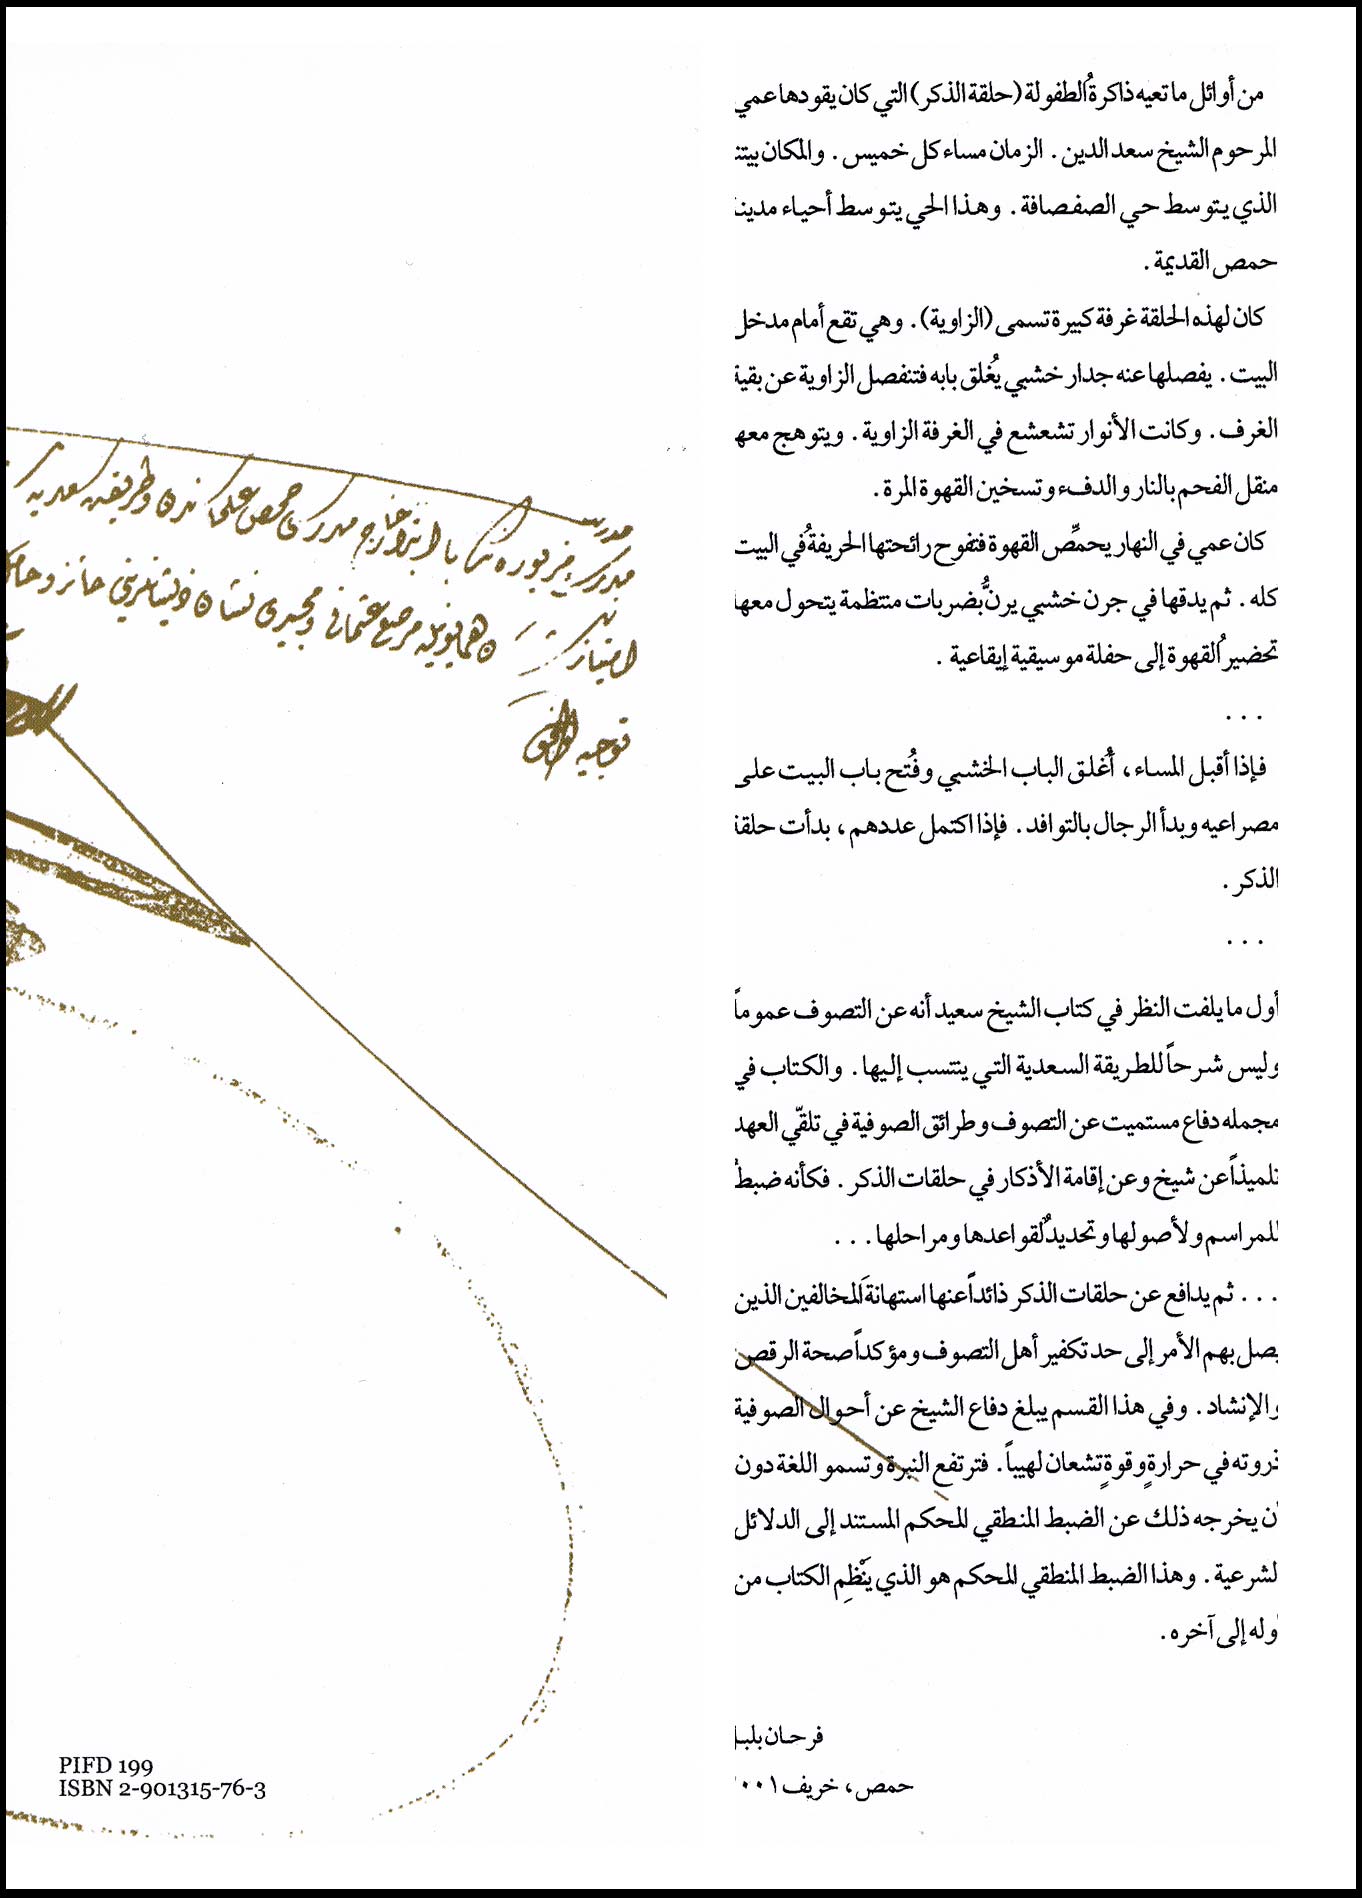 من أوائل ما تعيه ذاكرةُ الطفولة (حلقة الذكر) التي كان يقودها عمي
المرحوم الشيخ سعد الدين. الزمان مساء كل خميس. والمكان بيتنا
الذي يتوسط حي الصفصافة. وهذا الحي يتوسط أحياء مدينة
حمص القديمة.
كان لهذه الحلقة غرفة كبيرة تسمى (الزاوية). وهي تقع أمام مدخل
البيت. يفصلها عنه جدار خشبي يُغلق بابه فتنفصل الزاوية عن بقية
الغرف. وكانت الأنوار تشعشع في الغرفة الزاوية. ويتوهج معها
منقل الفحم بالنار والدفء وتسخين القهوة المرة.
كان عمي في النهار يحمِّص القهوة فتفوح رائحتها الحريفةُ في البيت
كله. ثم يدقها في جرن خشبي يرنُّ بضربات منتظمة يتحول معها
تحضيرُ القهوة إلى حفلة موسيقية إيقاعية.
...
فإذا أقبل المساء، أُغلق الباب الخشبي وفُتح باب البيت على
مصراعيه وبدأ الرجال بالتوافد. فإذا اكتمل عددهم، بدأت حلقة
الذكر.
...
أول ما يلفت النظر في كتاب الشيخ سعيد أنه عن التصوف عموماً
وليس شرحاً للطريقة السعدية التي ينتسب إليها. والكتاب في
مجمله دفاع مستميت عن التصوف وطرائق الصوفية في تلقّي العهد
تلميذاً عن شيخ وعن إقامة الأذكار في حلقات الذكر. فكأنه ضبطٌ
للمراسم ولأصولها وتحديدٌ لقواعدها ومراحلها...
... ثم يدافع عن حلقات الذكر ذائداً عنها استهانةَ المخالفين الذين
يصل بهم الأمر إلى حد تكفير أهل التصوف ومؤكداً صحة الرقص
والإنشاد. وفي هذا القسم يبلغ دفاع الشيخ عن أحوال الصوفية
ذروته في حرارةٍ وقوةٍ تشعان لهيباً. فترتفع النبرة وتسمو اللغة دون
أن يخرجه ذلك عن الضبط المنطقي المحكم المستند إلى الدلائل
الشرعية. وهذا الضبط المنطقي المحكم هو الذي يَنْظِم الكتاب من
أوله إلى آخره.
فرحان بلبل
حمص، خريف ٢٠٠١
توجيه
PIFD 199
ISBN 2-901315-76-3